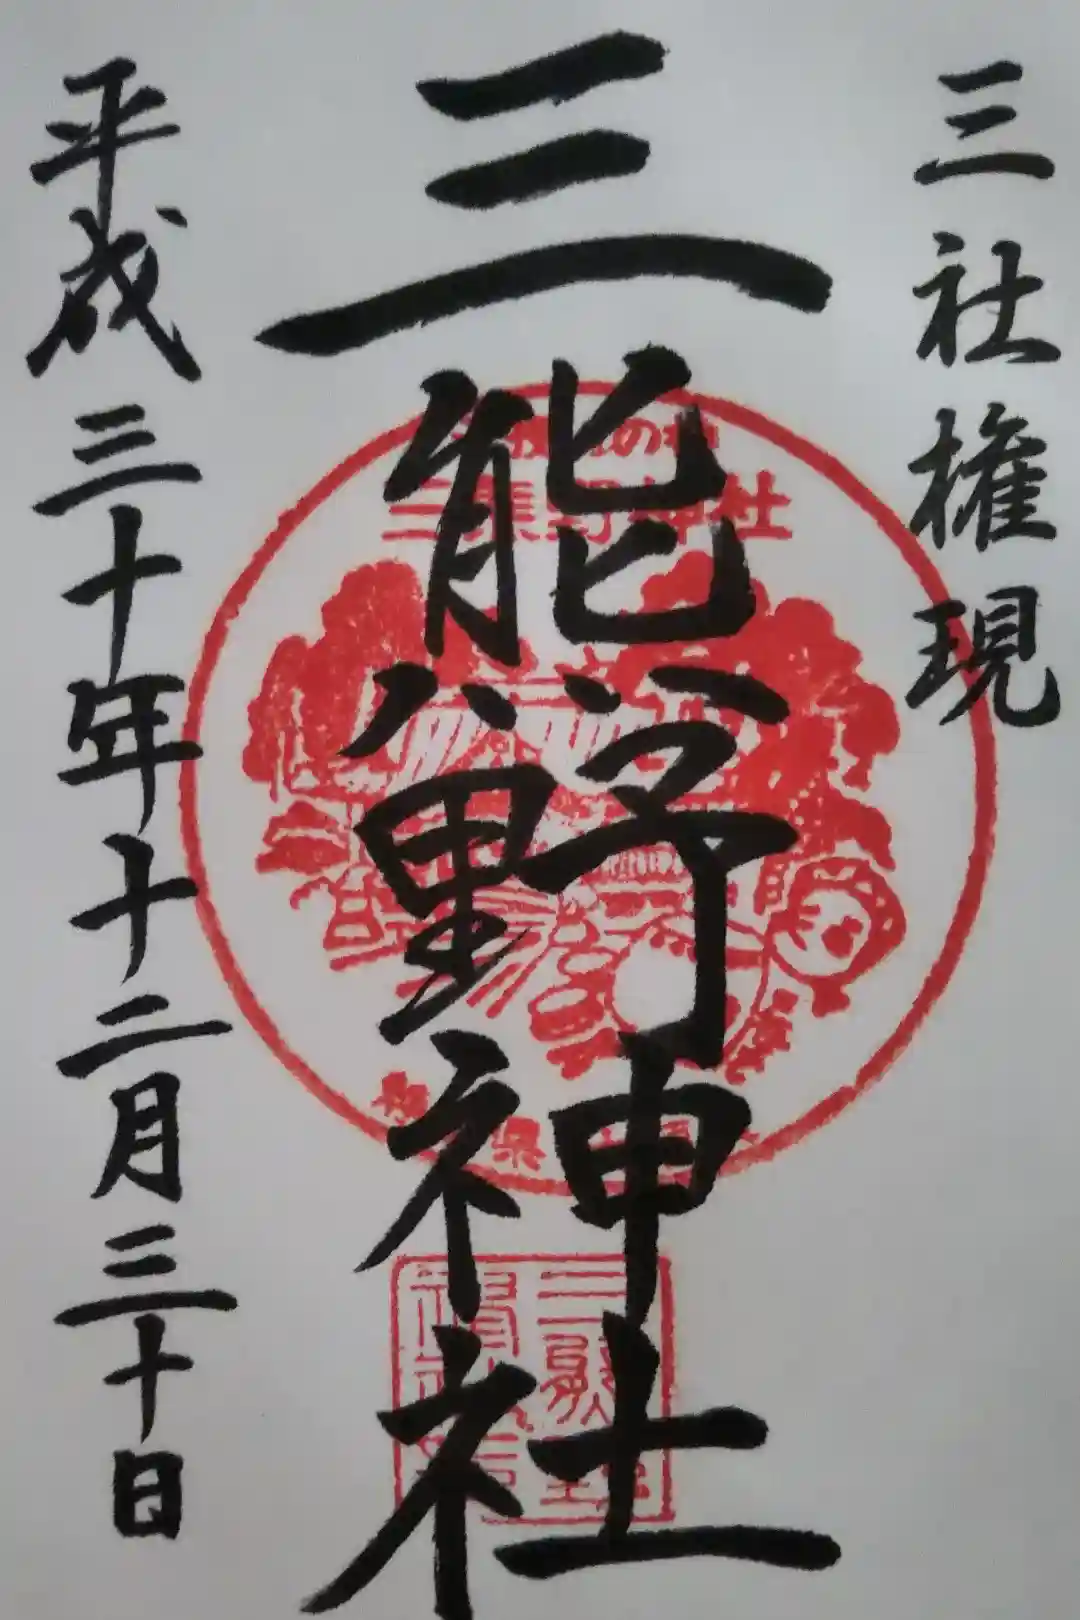 三社権現
三熊野神社
平成三十年十二月三十日
三熊野神社